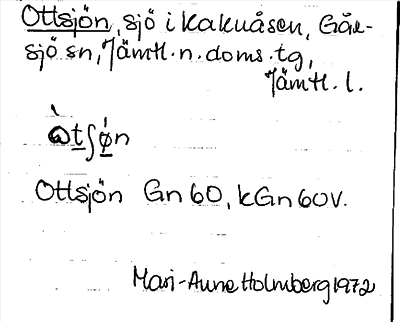 Ottsjön, sjö i Kakuåsen, Gåx-
sjö sn, Jämtl. n. doms. tg,
Jämtl. l.
Ottsjön Gn 60, kGn 60 V.
Mari-Anne Holmberg 1972